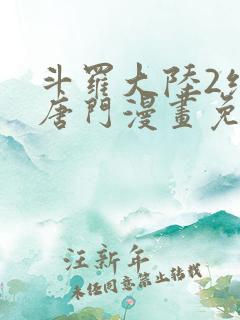 斗羅大陸2
唐門漫畫免
汪新年
未经同意禁止转载